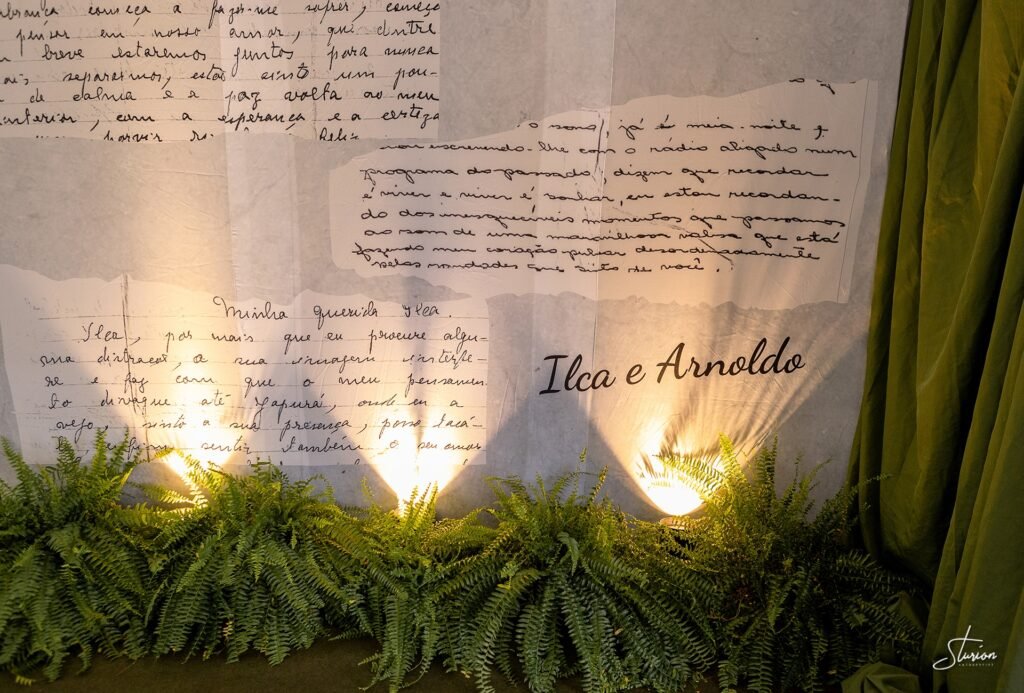 começa a fazer-me sofrer, começo
pensar em nosso amor, que dentre
breve estaremos juntos para nunca
mais separarmos, então sinto um pou-
de calma e a paz volta ao meu
interior, com a esperança e a certeza
Feliz
o sono, já é meia noite e
vou escrevendo-lhe com o rádio aligado num
programa do passado, dizem que recordar
é viver e viver é sonhar, eu estou recordan-
do dos inesquecíveis momentos que passamos
ao som de uma maravilhosa valsa que está
fazendo meu coração pulsar desordenadamente
pelas saudades que sinto de você.
Minha querida Ilca.
Ilca, por mais que eu procure algu-
ma distração, a sua imagem interfe-
re e faz com que o meu pensamen-
to divague até Japurá, onde eu a
vejo, sinto a sua presença, posso
sentir também o seu amor
Ilca e Arnoldo
Sturion